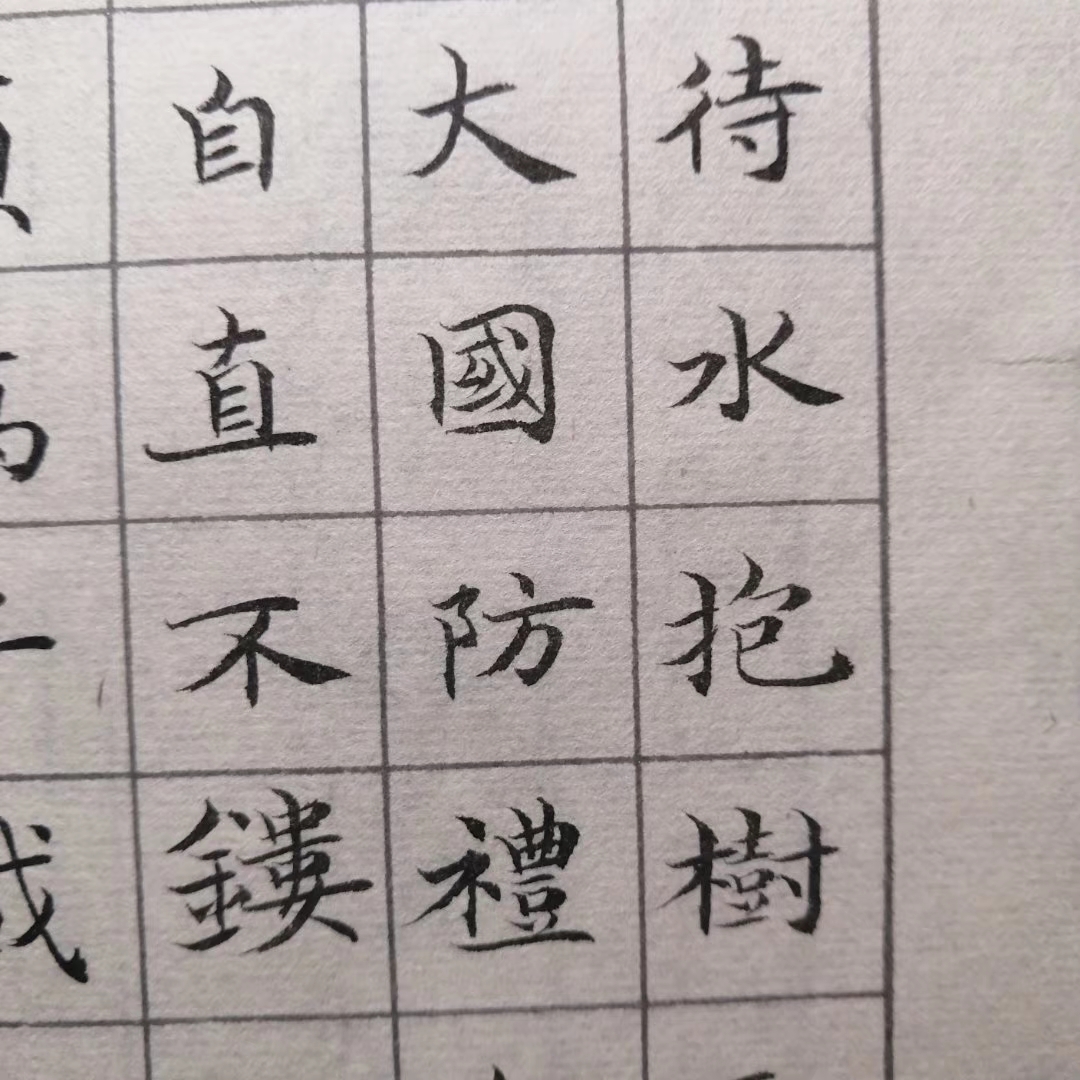 待水抱樹
大國防禮
自直不鏤